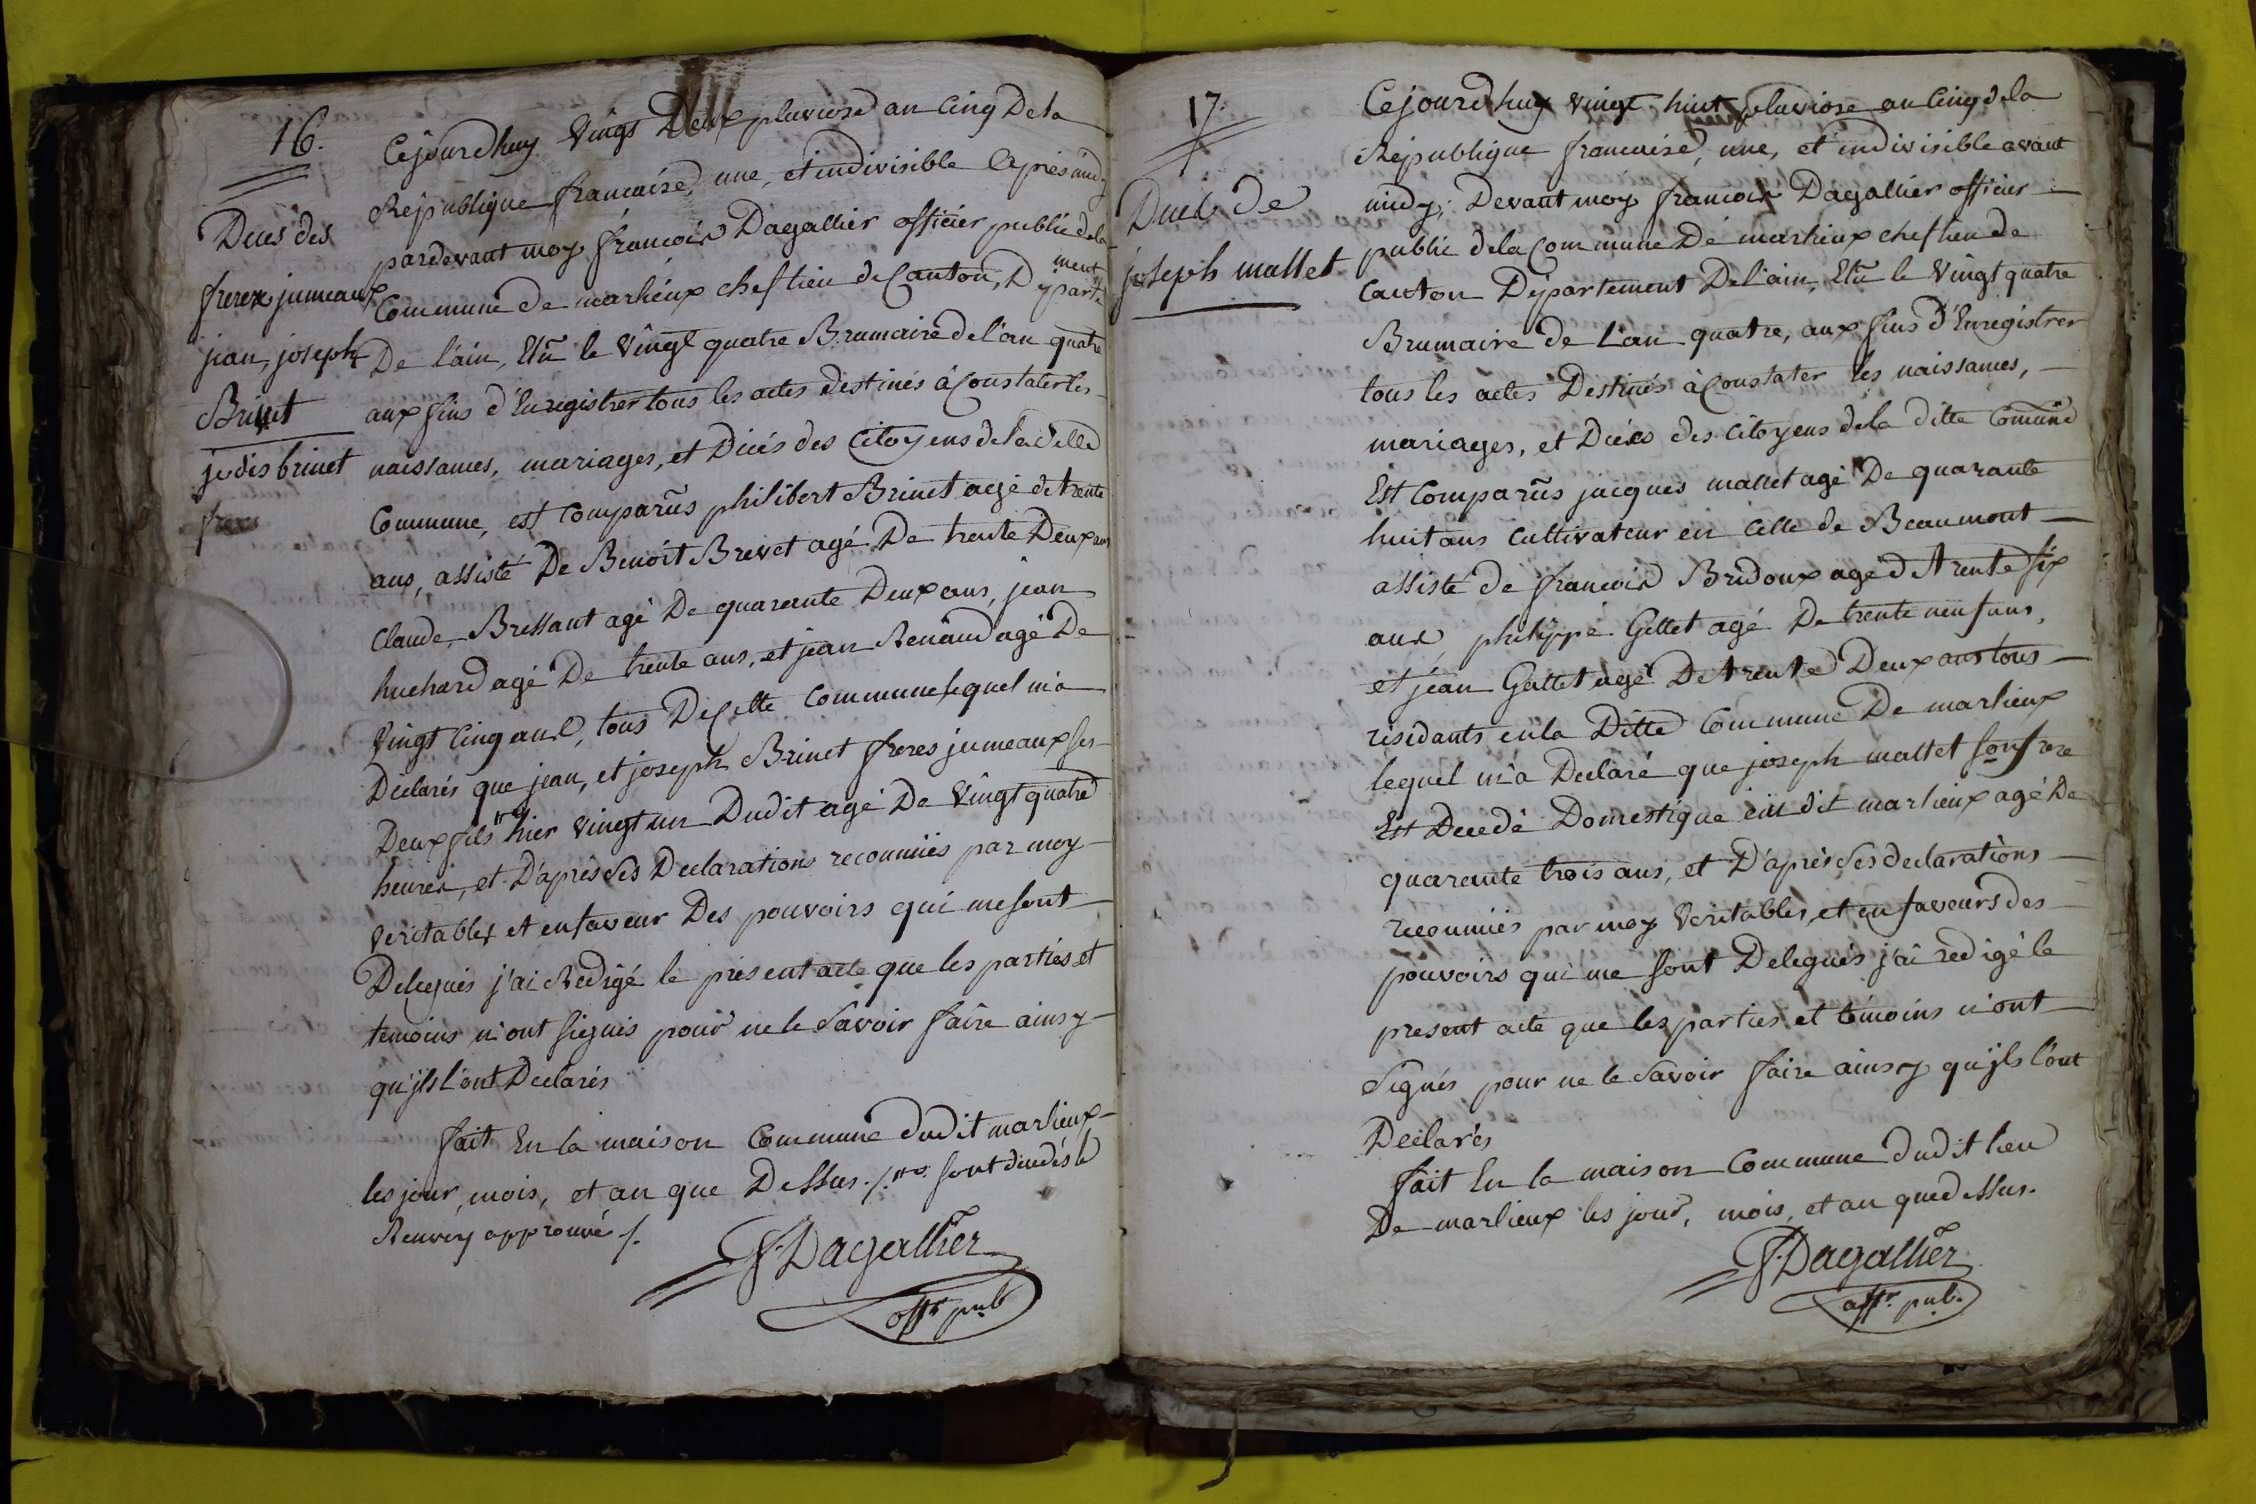 16.
Ducés des
freres jumeaux
jean, joseph
Brinet
je dis brinet
freres
Cejourdhuy Vingt Deux pluviose an Cinq De la
République francaise, une, et indivisible Après midy
pardevant moy françois Dagallier officier public de la
Commune de marlieux chef lieu de Canton, Departement
De l'ain, Elû le Vingt quatre Brumaire de l'an quatre
aux fins d'Enregistrer tous les actes destinés à Constater les
naissances, mariages, et Dicés des Citoyens de la ditte
Commune, est Comparûs philibert Brinet agé de trente
ans, assisté De Benoit Brevet agé De trente Deux ans
Claude Bressant agé De quarante Deux ans, jean
huchard agé De trente ans, et jean Renaud agé De
Vingt Cinq ans, tous De Cette Commune lequel m'a
Déclarés que jean, et joseph Brinet freres jumeaux ses
Deux fils hier Vingt un Dudit agé De Vingt quatre
heures, et D'après ses Declarations reconnües par moy
veritables et en faveur Des pouvoirs qui me sont
Delegués j'ai Redigé le present acte que les parties et
temoins n'ont signés pour ne le savoir faire ainsy
qu'jls l'ont Declarés
fait En la maison Commune dudit marlieux
les jour, mois, et an que Dessus ./. sont decedés le
Renvoy approuvé ./.
F. Dagallier
offr pub
17.
Ducé de
joseph mallet
Cejourdhuy Vingt huit pluviose an Cinq de la
République francaise, une, et indivisible avant
midy; Devant moy francois Dagallier officier
public de la Commune De marlieux chef lieu de
Canton Département De l'ain, Elû le Vingt quatre
Brumaire de L'an quatre, aux fins d'Enregistrer
tous les actes Destinés à Constater les naissances,
mariages, et Dicés des Citoyens de la ditte Comune
Est Comparûs jacques mallet agé De quarante
huit ans Cultivateur en Celle de Beaumont
assisté de francois Bridoux agé de trente six
ans, philippe Gillet agé De trente neuf ans,
et jean Gattet agé De trente Deux ans tous
residants en la Ditte Commune De marlieux
lequel m'a Declaré que joseph mallet son frere
Est Decedé Domestique au dit marlieux agé De
quarante trois ans, et D'après ses declarations
reconnües par moy Veritables, et en faveurs des
pouvoirs qui me sont Delegués j'ai redigé le
present acte que les parties et témoins n'ont
Signés pour ne le Savoir faire ainsy qu'jls l'ont
Declarés
fait En la maison Commune dudit lieu
De marlieux les jour, mois, et an que dessus.
F. Dagallier
offr. pub.